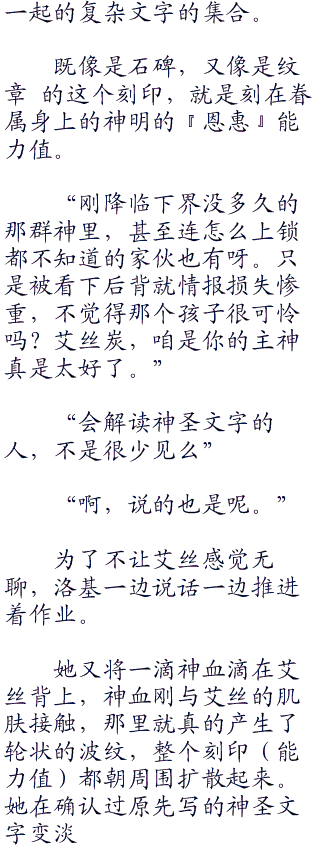 一起的复杂文字的集合。
既像是石碑，又像是纹
章 的这个刻印，就是刻在眷
属身上的神明的『恩惠』能
力值。
“刚降临下界没多久的
那群神里，甚至连怎么上锁
都不知道的家伙也有呀。只
是被看下后背就情报损失惨
重，不觉得那个孩子很可怜
吗？艾丝炭，咱是你的主神
真是太好了。”
“会解读神圣文字的
人，不是很少见么”
“啊，说的也是呢。”
为了不让艾丝感觉无
聊，洛基一边说话一边推进
着作业。
她又将一滴神血滴在艾
丝背上，神血刚与艾丝的肌
肤接触，那里就真的产生了
轮状的波纹，整个刻印（能
力值）都朝周围扩散起来。
她在确认过原先写的神圣文
字变淡